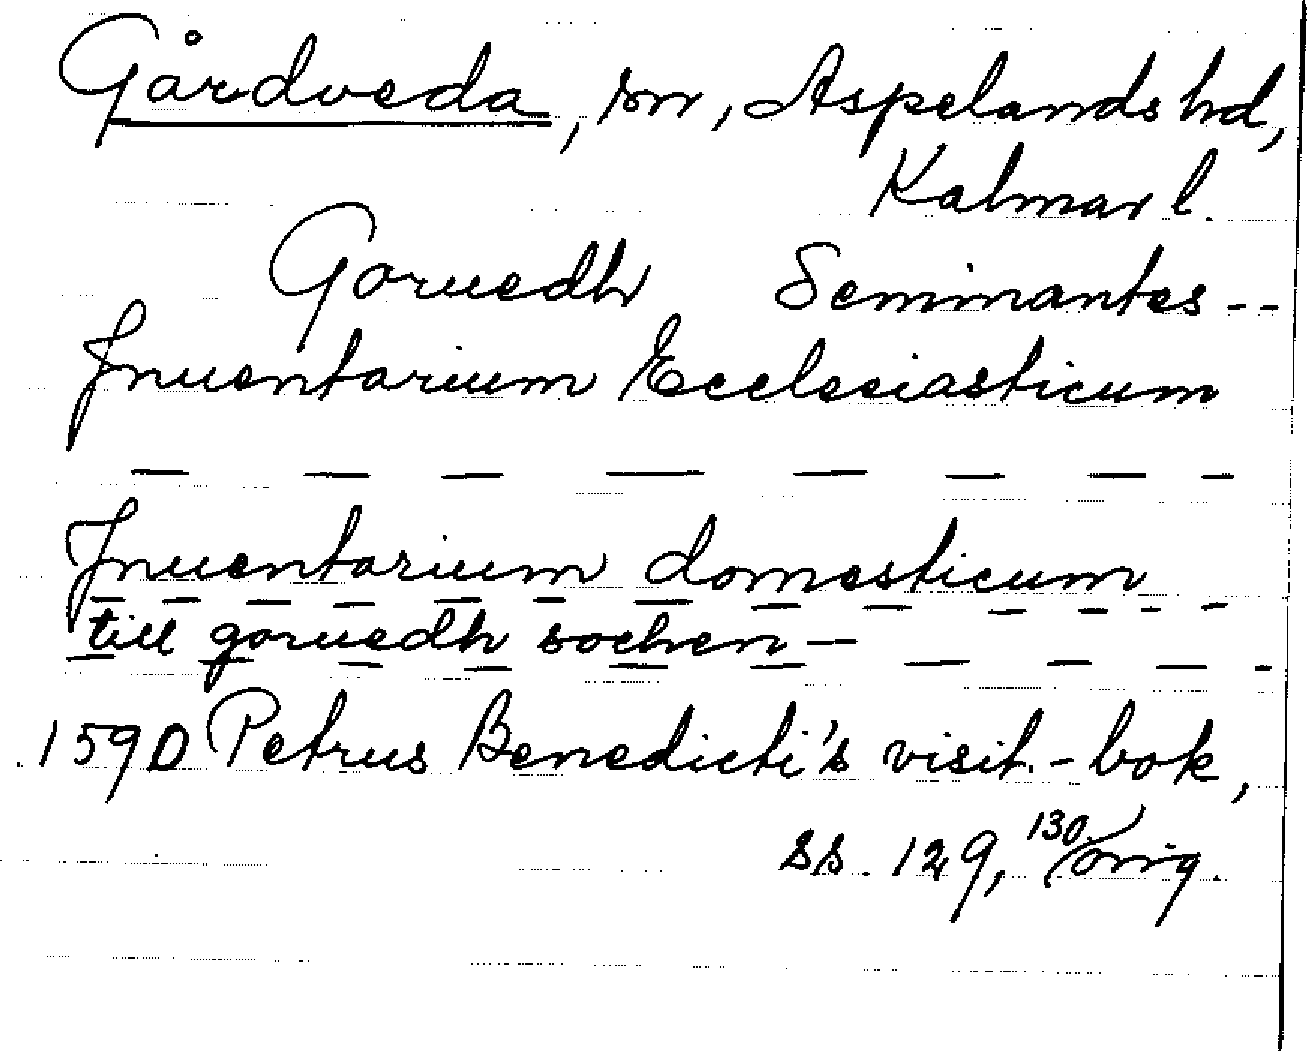 Gårdveda, sn, Aspelands hd,
Kalmar l.
Goruedh Seminantes --
Inuentarium Ecclesiasticum
— — — — — — — -
Inuentarium domesticum
till goruedh sochen —
1590 Petrus Benedicti's visit.-bok,
ss. 129, 130. orig.